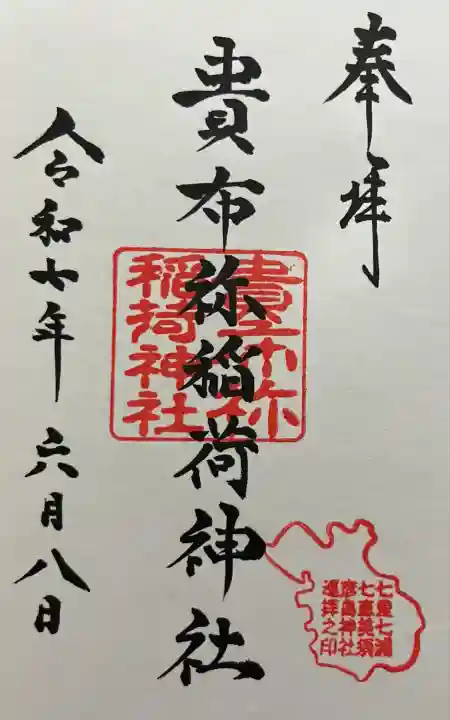 奉拝
貴布祢稲荷神社
令和七年 六月八日
貴布祢
稲荷神社
七里七浦
七恵美須
唐島神社
巡拝之印